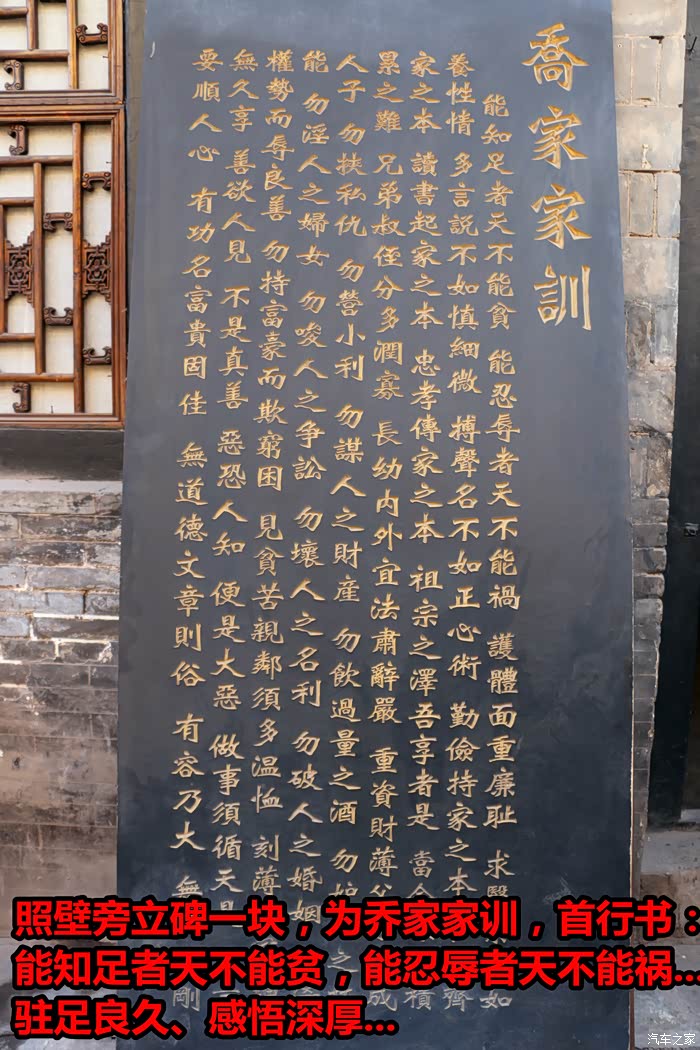 喬家家訓
能知足者天不能貧 能忍辱者天不能禍 護體面重廉耻 求醫 如
養性情 多言説不如慎細微 搏聲名不如正心術 勤儉持家之本 齊
家之本 讀書起家之本 忠孝傳家之本 祖宗之澤吾享者是 當 積
累之難 兄弟叔侄分多潤寡 長幼内外宜法肅辭嚴 重資財薄 成
人子 勿挾私仇 勿營小利 勿謀人之財産 勿飲過量之酒 勿 之
能 勿淫人之婦女 勿唆人之争訟 勿壞人之名利 勿破人之婚姻
權勢而辱良善 勿持富豪而欺窮困 見貧苦親鄰須多温恤 刻薄
無久享 善欲人見 不是真善 惡恐人知 便是大惡 做事須循天
要順人心 有功名富貴固佳 無道德文章則俗 有容乃大 無 剛
照壁旁立碑一块，为乔家家训，首行书：
能知足者天不能贫，能忍辱者天不能祸...
驻足良久、感悟深厚...
汽车之家